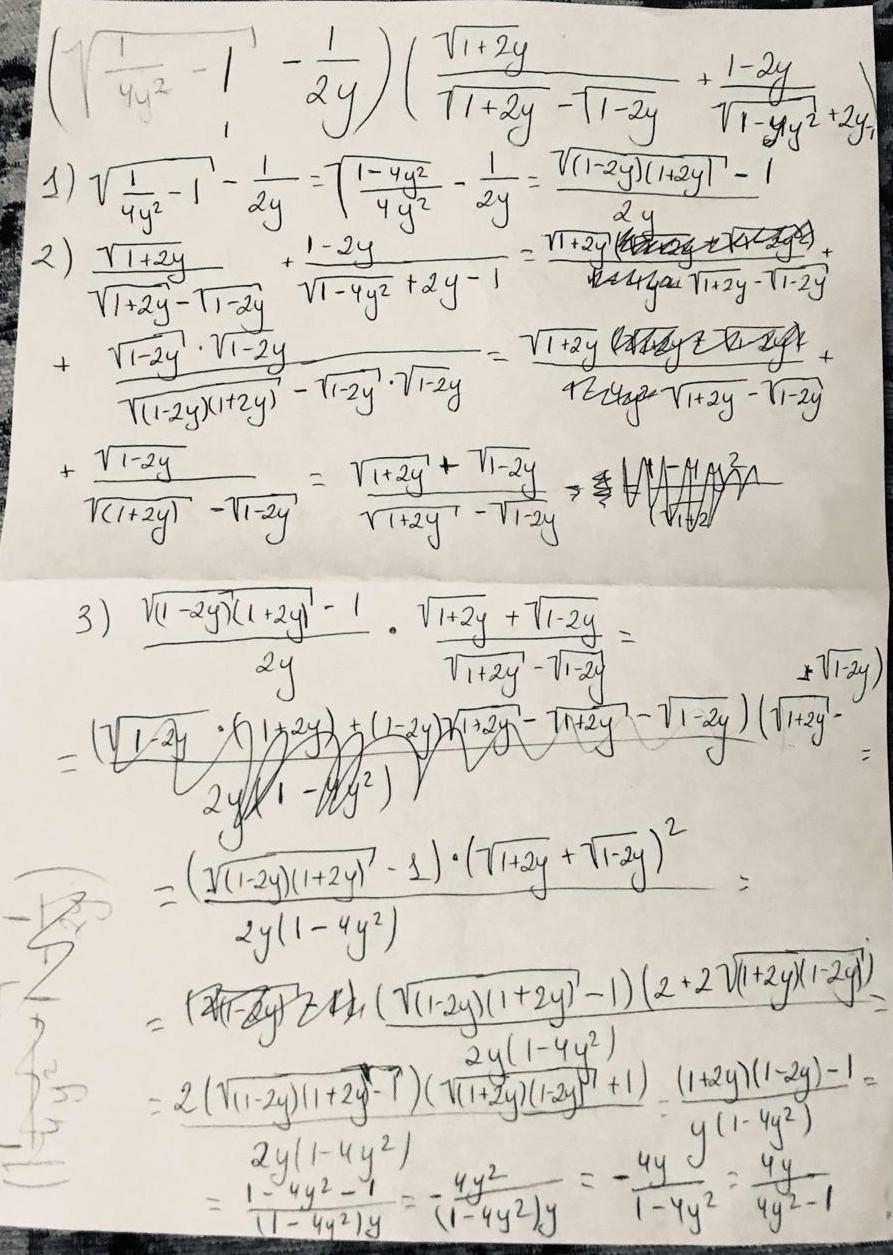 (√(1/(4y²) - 1) - 1/(2y)) (√(1+2y)/(√(1+2y) - √(1-2y)) + (1-2y)/(√(1-4y²) + 2y-1))
1) √(1/(4y²) - 1) - 1/(2y) = √((1-4y²)/(4y²)) - 1/(2y) = (√((1-2y)(1+2y)) - 1)/(2y)
2) √(1+2y)/(√(1+2y) - √(1-2y)) + (1-2y)/(√(1-4y²) + 2y - 1) = √(1+2y)/(√(1+2y) - √(1-2y)) +
+ (√(1-2y) · √(1-2y))/(√((1-2y)(1+2y)) - √(1-2y) · √(1-2y)) = √(1+2y)/(√(1+2y) - √(1-2y)) +
+ √(1-2y)/(√(1+2y) - √(1-2y)) = (√(1+2y) + √(1-2y))/(√(1+2y) - √(1-2y))
3) (√((1-2y)(1+2y)) - 1)/(2y) · (√(1+2y) + √(1-2y))/(√(1+2y) - √(1-2y)) =
= ((√((1-2y)(1+2y)) - 1) · (√(1+2y) + √(1-2y))²)/(2y(1-4y²)) =
= ((√((1-2y)(1+2y)) - 1)(2 + 2√((1+2y)(1-2y))))/(2y(1-4y²)) =
= (2(√((1-2y)(1+2y)) - 1)(√((1+2y)(1-2y)) + 1))/(2y(1-4y²)) = ((1+2y)(1-2y) - 1)/(y(1-4y²)) =
= (1-4y²-1)/((1-4y²)y) = -4y²/((1-4y²)y) = -4y/(1-4y²) = 4y/(4y²-1)